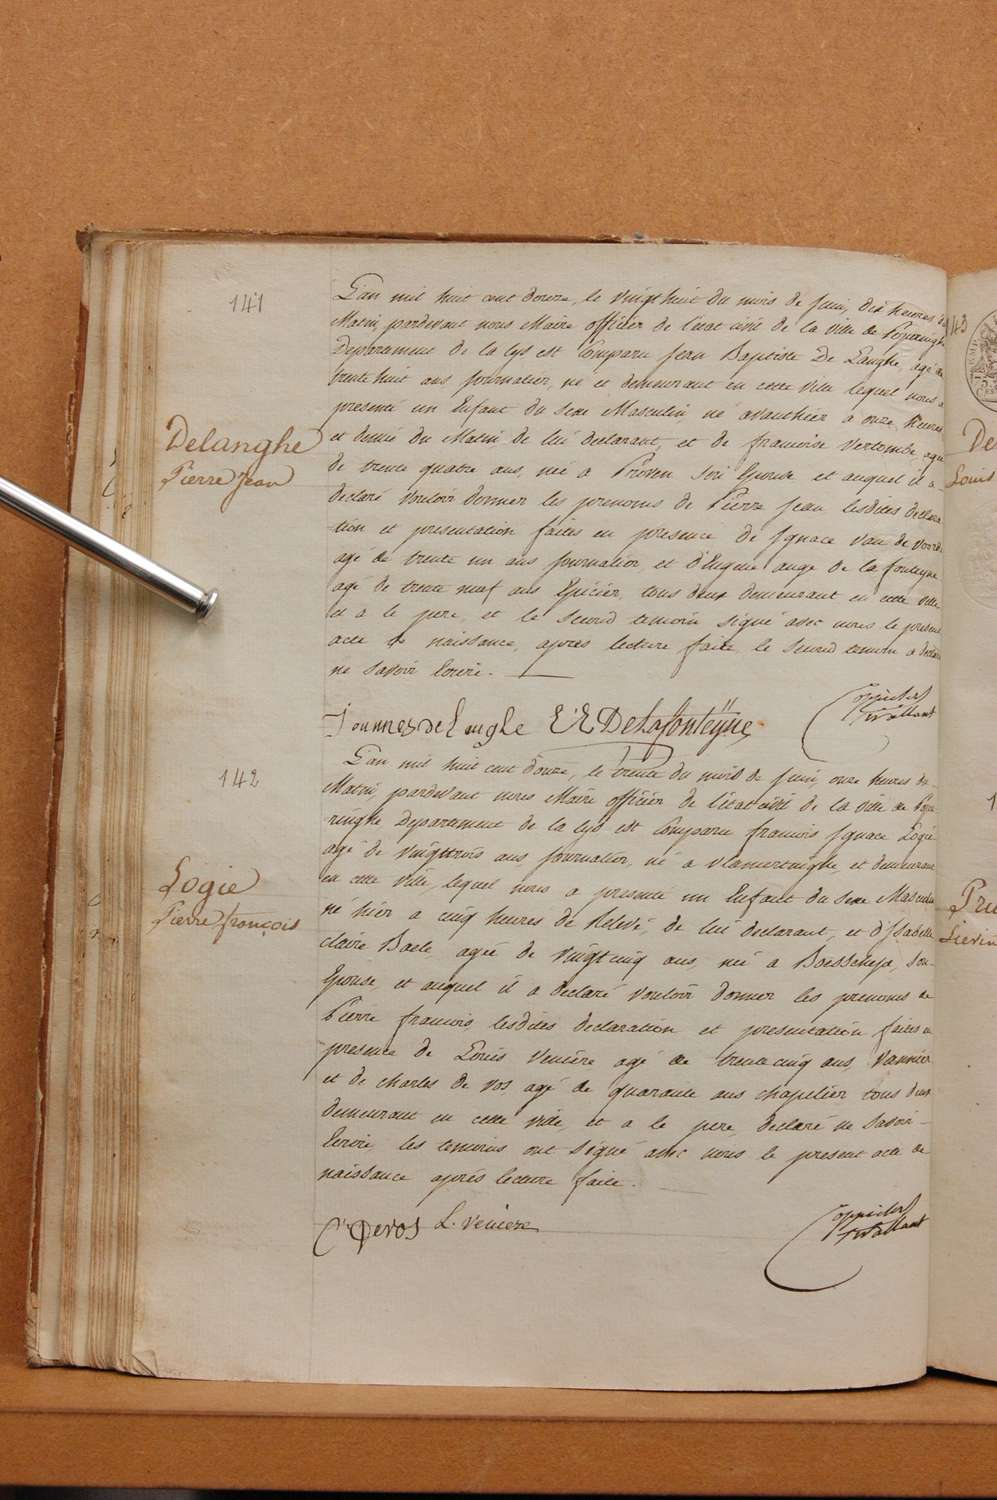 141
L'an mil huit cent douze, le vingthuit du mois de Juin, dix heures du
Matin, pardevant nous Maire officier de l'état civil de la ville de Poperinghe
Departament de la Lys est Comparu Jean Baptiste De Langhe, agé de
trente huit ans, Journalier, né et demeurant en cette ville lequel nous a
presenté un Enfant du Sexe Masculin, né avanthier à onze heures
Delanghe
et demie du Matin de lui declarant, et de francoise Vertombe, agée
Pierre Jean
de trente quatre ans, née a Proven son Epouse et auquel il a
declaré vouloir donner les prenoms de Pierre Jean lesdites declara
-tion et presentation faites en presence de Ignace Van de Voorde
agé de trente un ans Journalier, et d'Eugene ange de la fonteyne
agé de trente neuf ans Epicier, tous deux demeurant en cette ville
et a le pere, et le second temoin signé avec nous le present
acte de naissance, apres lecture faite, le second temoin a declaré
ne savoir Ecrire.
Joannes de Langhe E: DeLafonteyne
142
L'an mil huit cent douze, le trente du mois de Juin, onze heures du
Matin, pardevant nous Maire officier de l'état civil de la ville de Pope
ringhe Departament de la Lys est Comparu francois Ignace Logie
agé de vingttrois ans, Journalier, né a Vlamertinghe, et demeurant
Logie
en cette ville, lequel nous a presenté un Enfant du Sexe Masculin
Pierre françois
né hier a cinq heures de Relevé, de lui declarant, et d'Isabelle
claire Baele agée de vingtcinq ans, née a Boesschepe, son
Epouse, et auquel il a declaré vouloir donner les prenoms de
Pierre francois, lesdites declaration et presentation faites en
presence de Louis Veniere agé de trente cinq ans, Vannier
et de charles de vos, agé de quarante ans chapelier tous deux
demeurant en cette ville, et a le pere, declaré ne savoir
Ecrire, les temoins ont signé avec nous le present acte de
naissance après lecture faite.
C: Devos L. Veniere
143
De
Louis
Pru
Lievin